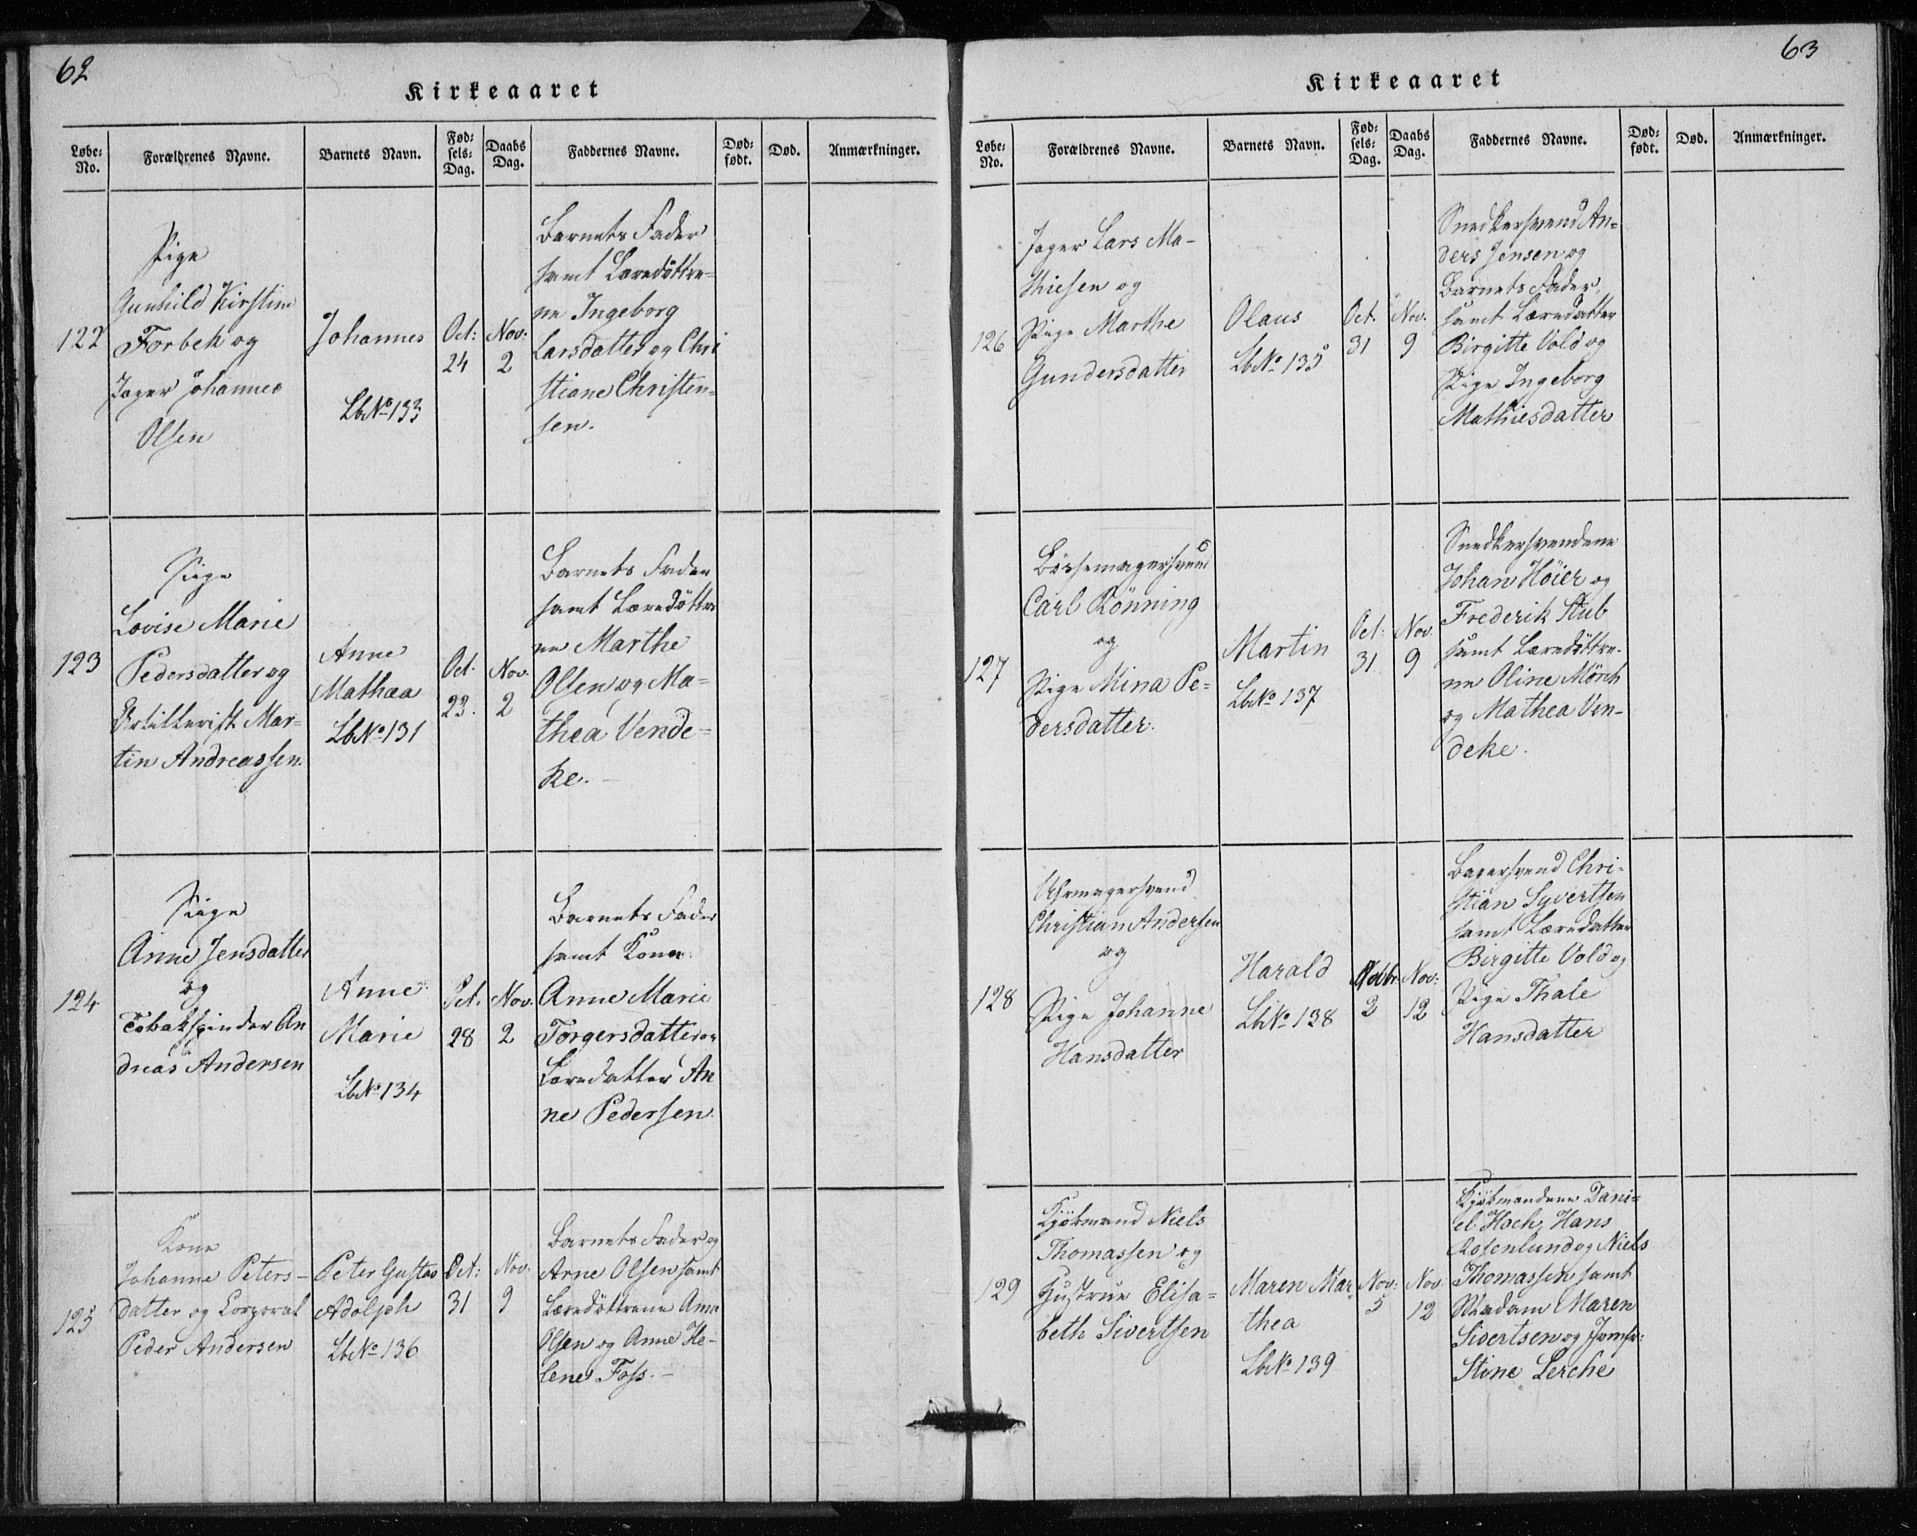 62
Kirkeaaret
Løbe-
No.
Forældrenes Navne.
Barnets Navn.
Fød-
sels-
Dag.
Daabs
Dag.
Faddernes Navne.
Død-
født.
Død.
Anmærkninger.
122
Pige
Gunhild Kirstine
Forbek og
Jæger Johannes
Olsen
Johannes
LbNo 133
Oct:
24
Nov:
2
Barnets Fader
samt Læredöttre-
ne Ingeborg
Larsdatter og Chri
stiane Christen-
sen.
123
Pige
Lovise Marie
Pedersdatter og
Artillerist Mar-
tin Andreassen.
Anne
Mathæa
LbNo 131
Oct.
23.
Nov.
2
Barnets Fader
samt Læredöttre
ne Marthe
Olsen og Ma-
thea Vende-
ke.
124
Pige
Anne Jensdatter
og
Tobakspinder An
dreas Andersen
Anne
Marie
LbNo 134
Oct.
28
Nov.
2
Barnets Fader
samt Kone
Anne Marie
Torgersdatter og
Læredatter An
ne Pedersen.
125
Kone
Johanne Peters-
datter og Corporal
Peder Andersen
Peter Gustav
Adolph
LbNo 136
Oct:
31
Nov:
9
Barnets Fader og
Arne Olsen samt
Læredöttrene Anne
Olsen og Anne He-
lene Foss.
63
Kirkeaaret
Løbe-
No.
Forældrenes Navne.
Barnets Navn.
Fød-
sels-
Dag.
Daabs
Dag.
Faddernes Navne.
Død-
født.
Død.
Anmærkninger.
126
Jæger Lars Ma-
thiesen og
Pige Marthe
Gundersdatter
Olaus
LbNo 135
Oct.
31
Nov.
9
Snedkersvend An-
ders Jensen og
Barnets Fader,
samt Læredatter
Birgitte Vold og
Pige Ingeborg
Mathiesdatter
127
Børsemagersvend
Carl Rönning
og
Pige Mina Pe-
dersdatter.
Martin
LbNo 137
Oct:
31
Nov.
9
Snedkersvendene
Johan Höier og
Frederik Stub
samt Læredöttre-
ne Oline Mörch
og Mathea Ven-
deke.
128
Uhrmagersvend
Christian Andersen
og
Pige Johanne
Hansdatter
Harald
LbNo 138
2
Nov:
12
Bagersvend Chri-
stian Syvertsen
samt Læredatter
Birgitte Vold og
Pige Thale
Hansdatter
129
Kjöbmand Niels
Thomassen og
Hustrue Elisa-
beth Sivertsen
Maren Mar-
thea
LbNo 139
Nov:
5
Nov
12
Kjöbmændene Dani-
el Hoch, Hans
Rosenlund og Niels
Thomassen samt
Madam Maren
Sivertsen og Jomfr:
Stine Lerche